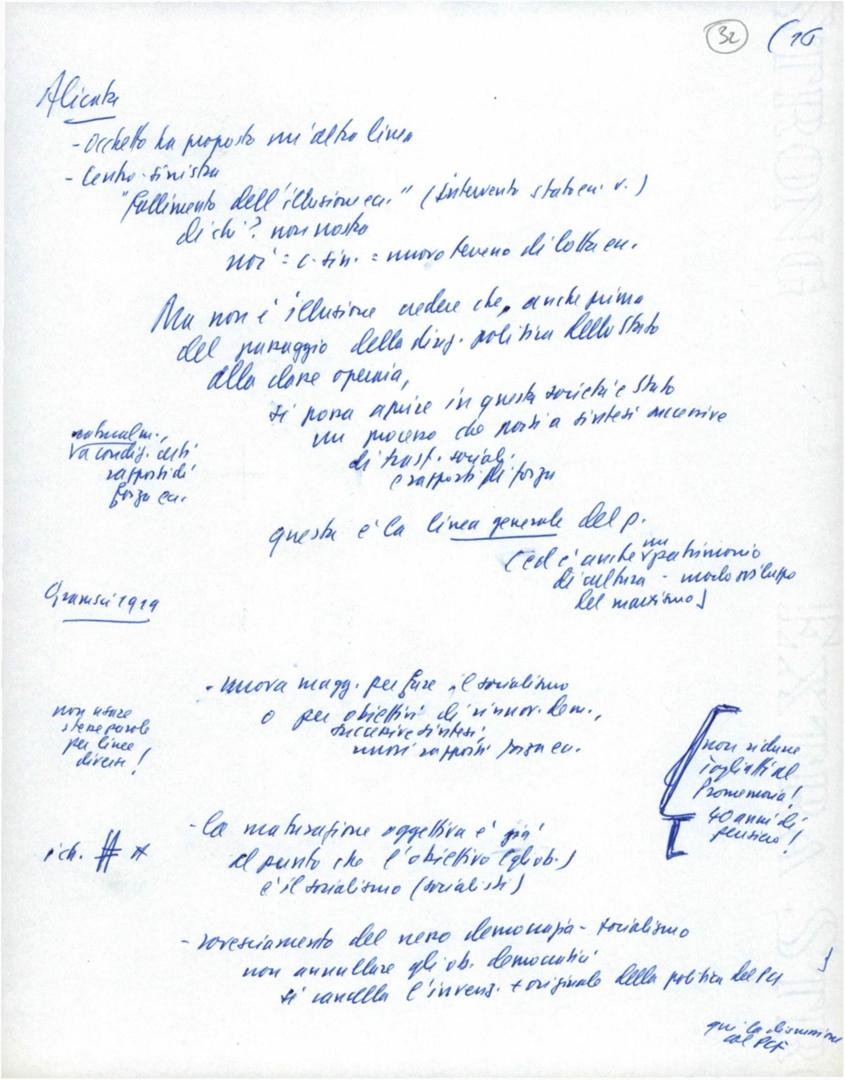 32 (16
Alicata
- Occhetto ha proposto un'altra linea
- Centro-sinistra
"Fallimento dell'illusione ec." (intervento stato ec. v.)
di chi? non nostra
noi = c-sin. = nuovo terreno di lotta ec.
Ma non è illusione credere che, anche prima
del passaggio della direz. politica dello Stato
alla classe operaia,
si possa aprire in questa società e Stato
un processo che porti a sintesi successive
di trasf. sociali
e rapporti di forza
naturalm.,
va condiz. dai
rapporti di
forza ec.
questa è la linea generale del p.
(ed è anche un patrimonio
di cultura - modo sviluppo
del marxismo)
Gramsci 1919
- nuova magg. per fare il socialismo
o per obiettivi di rinnov. dem.,
successive sintesi
nuovi rapporti forza ec.
non usare
stesse parole
per linee
diverse!
non ridurre
Togliatti al
Promemoria!
40 anni di
pensiero!
- la maturazione oggettiva è già
al punto che l'obiettivo (gli ob.)
è il socialismo (socialisti)
ich. # *
- rovesciamento del nesso democrazia - socialismo
non annullare gli ob. democratici
si cancella l'invenz. + originale della politica del PCI
qui la discussione
col PCF